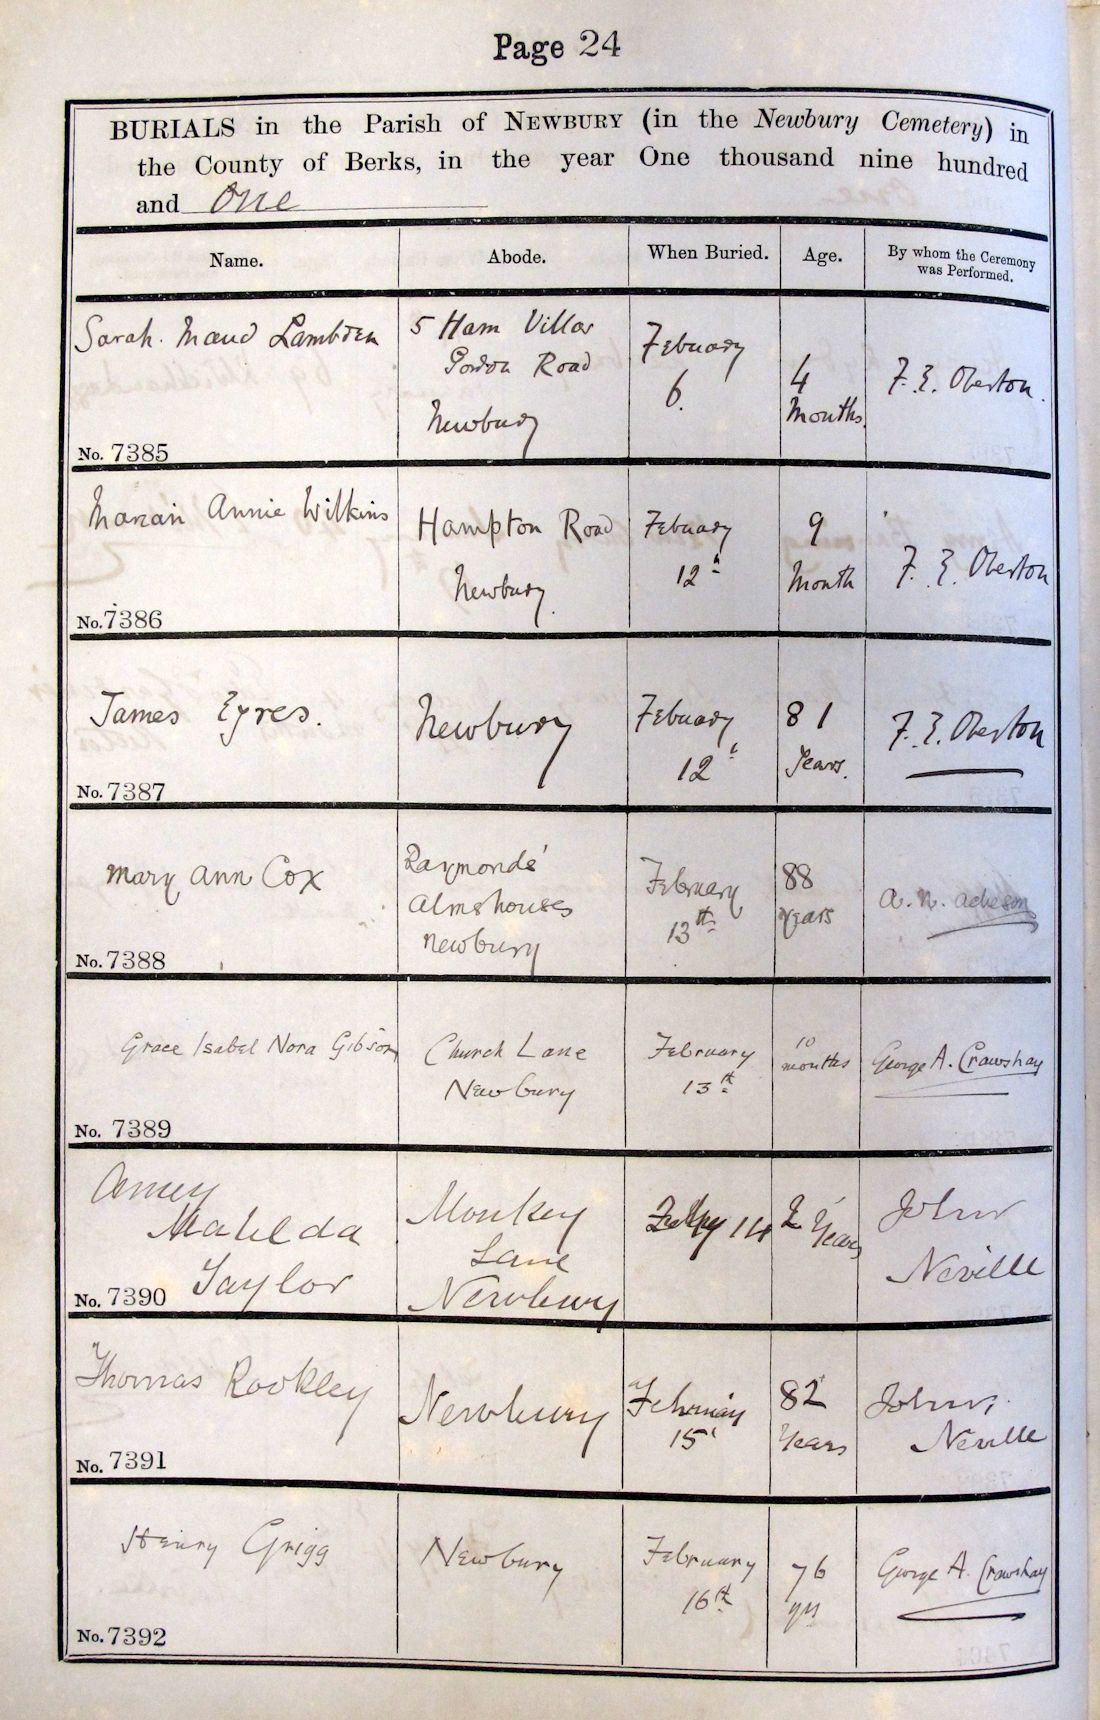 Page 24
BURIALS in the Parish of NEWBURY (in the Newbury Cemetery) in
the County of Berks, in the year One thousand nine hundred
and One
Name. Abode. When Buried. Age. By whom the Ceremony
was Performed.
Sarah. Maud Lambden
5 Ham Villas
Gordon Road
Newbury
Febuary
6.
4
Months.
F. E. Overton.
No. 7385
Marian Annie Wilkins
Hampton Road
Newbury.
Febuary
12h
9
Month
F. E. Overton
No. 7386
James Eyres.
Newbury
Febuary
12h
81
Years.
F. E. Overton
No. 7387
Mary Ann Cox
Raymonds'
Almshouses
Newbury
February
13th
88
years
A. N. Acheson
No. 7388
Grace Isabel Nora Gibson
Church Lane
Newbury
February
13th
10
months
George A. Crawshay
No. 7389
Amey
Matilda
Taylor
Monkey
Lane
Newbury
14
2 Years
John
Neville
No. 7390
Thomas Rookley
Newbury
February
15
82
Years
John
Neville
No. 7391
Henry Grigg
Newbury
February
16th
76
yrs
George A. Crawshay
No. 7392